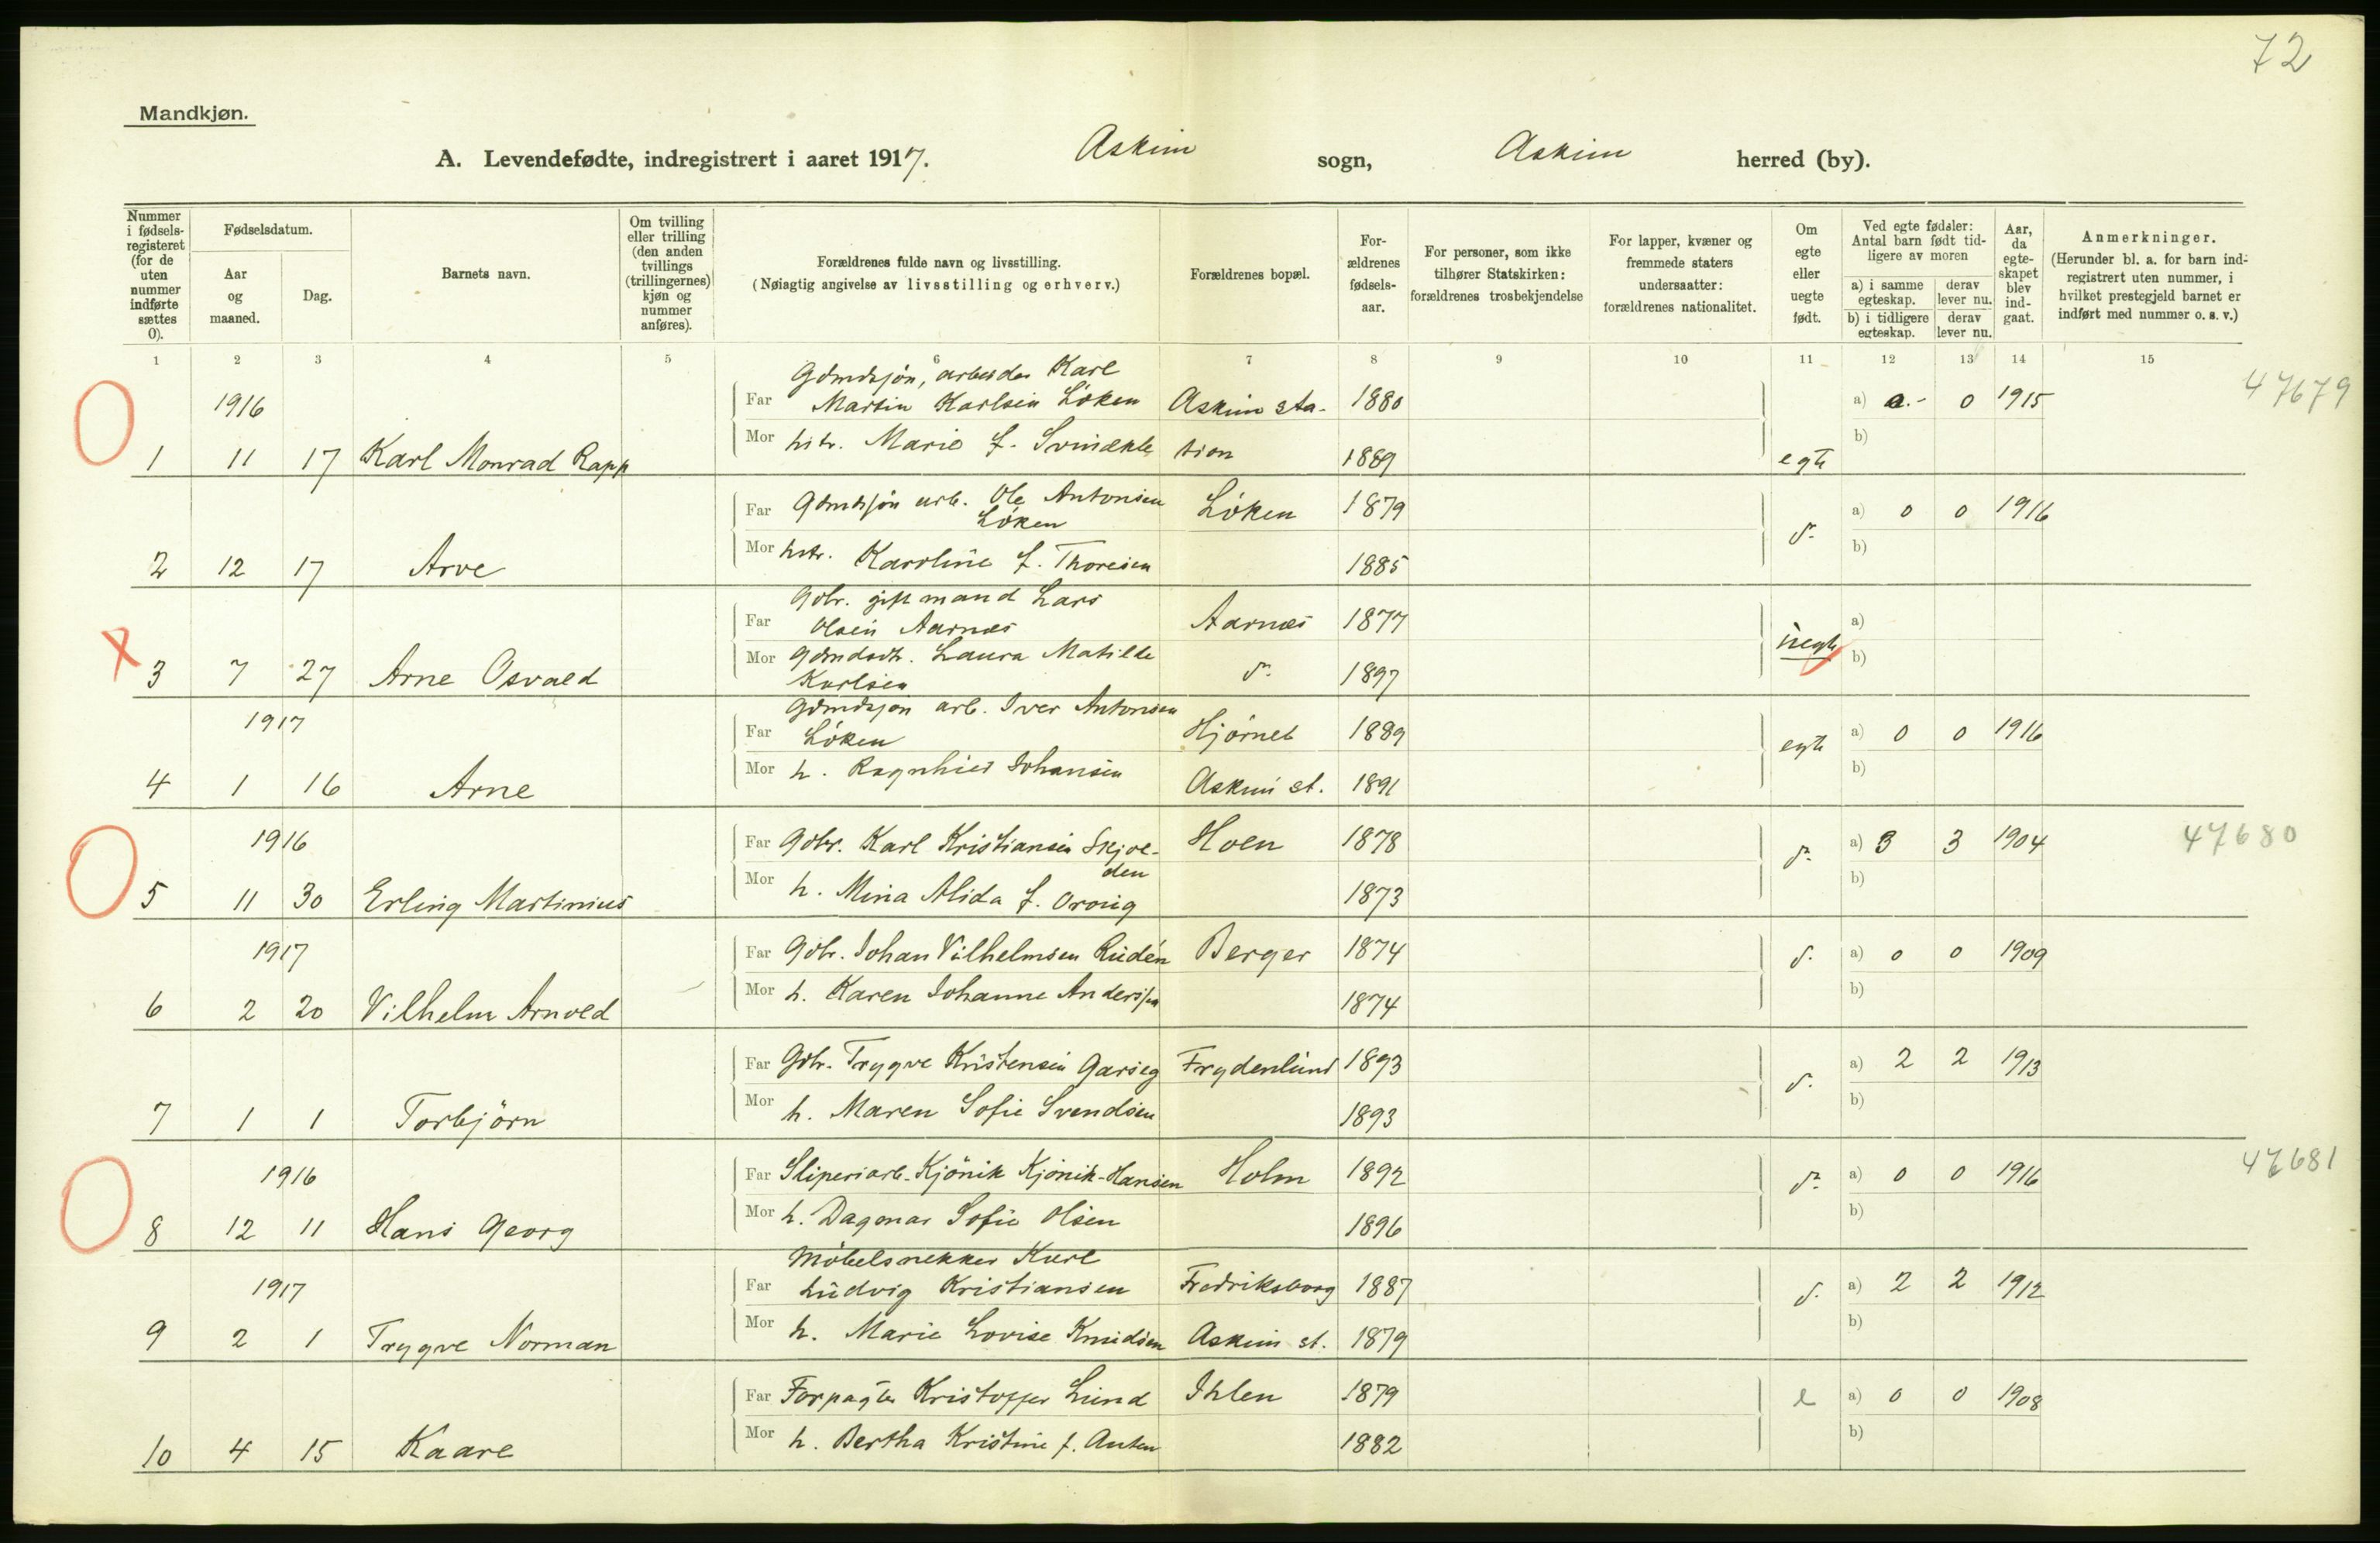 72
Mandkjøn.
A. Levendefødte, indregistrert i aaret 1917. Askim sogn, Askim herred (by).
Nummer i fødsels-registeret (for de uten nummer indførte sættes 0).
Fødselsdatum.
Aar og maaned.
Dag.
Barnets navn.
Om tvilling eller trilling (den anden tvillings (trillingernes) kjøn og nummer anføres).
Forældrenes fulde navn og livsstilling.
(Nøiagtig angivelse av livsstilling og erhverv.)
Forældrenes bopæl.
For-ældrenes fødsels-aar.
For personer, som ikke tilhører Statskirken: forældrenes trosbekjendelse
For lapper, kvæner og fremmede staters undersaatter: forældrenes nationalitet.
Om egte eller uegte født.
Ved egte fødsler: Antal barn født tid-ligere av moren
a) i samme egteskap. derav lever nu.
b) i tidligere egteskap. derav lever nu.
Aar, da egte-skapet blev ind-gaat.
Anmerkninger.
(Herunder bl. a. for barn ind-registrert uten nummer, i hvilket prestegjeld barnet er indført med nummer o. s. v.)
1 2 3 4 5 6 7 8 9 10 11 12 13 14 15
Gdmdsjøn, arbeider Karl
1916 Far Martin Karlsen Løken Askim sta- 1880 a) 0 1915 47679
1 11 17 Karl Monrad Rapp Mor hstr. Marie f. tion 1889 egte b)
Far Gdmdsjøn arb. Ole Antonsen Løken 1879 a) 0 0 1916
Løken
2 12 17 Arve Mor hstr. Karoline f. Thoresen 1885 d. b)
Gdbr. gift mand Lars
Far Olsen Aarnæs Aarnæs 1877 a)
3 7 27 Arne Osvald Mor Gdmdsdt. Laura Matilde d. 1897 uegte b)
Karlsen
Gdmdsjøn arb. Iver Antonsen
1917 Far Løken Hjørnet 1889 a) 0 0 1916
4 1 16 Arne Mor h. Ragnhild Johansen Askim st. 1891 egte b)
1916 Far Gdbr. Karl Kristiansen Skjol- Hoen 1878 a) 3 3 1904 47680
den
5 11 30 Erling Martinius Mor h. Mina Alida f. 1873 d. b)
1917 Far Gdbr. Johan Vilhelmsen Rudén Berger 1874 a) 0 0 1909
6 2 20 Vilhelm Arnold Mor h. Karen Johanne Anderssen 1874 d. b)
Far Gdbr. Trygve Kristensen Garseg Frydenlund 1893 a) 2 2 1913
7 1 1 Torbjørn Mor h. Maren Sofie Svendsen 1893 d. b)
1916 Far Sliperiarb. Kjønik Kjønik-Hansen Holm 1892 a) 0 0 1916 47681
8 12 11 Hans Georg Mor h. Dagmar Sofie Olsen 1896 d. b)
Møbelsnekker Karl
1917 Far Ludvig Kristiansen Fredriksborg 1887 a) 2 2 1912
9 2 1 Trygve Norman Mor h. Marie Lovise Knudsen Askim st. 1879 d. b)
Far Forpagter Kristoffer Lund Ihlen 1879 a) 0 0 1908
10 4 15 Kaare Mor h. Bertha Kristine f. Anten 1882 e b)